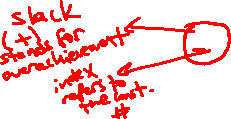 slack
(+)
stands for
overachievement
index
refers to
the last
#